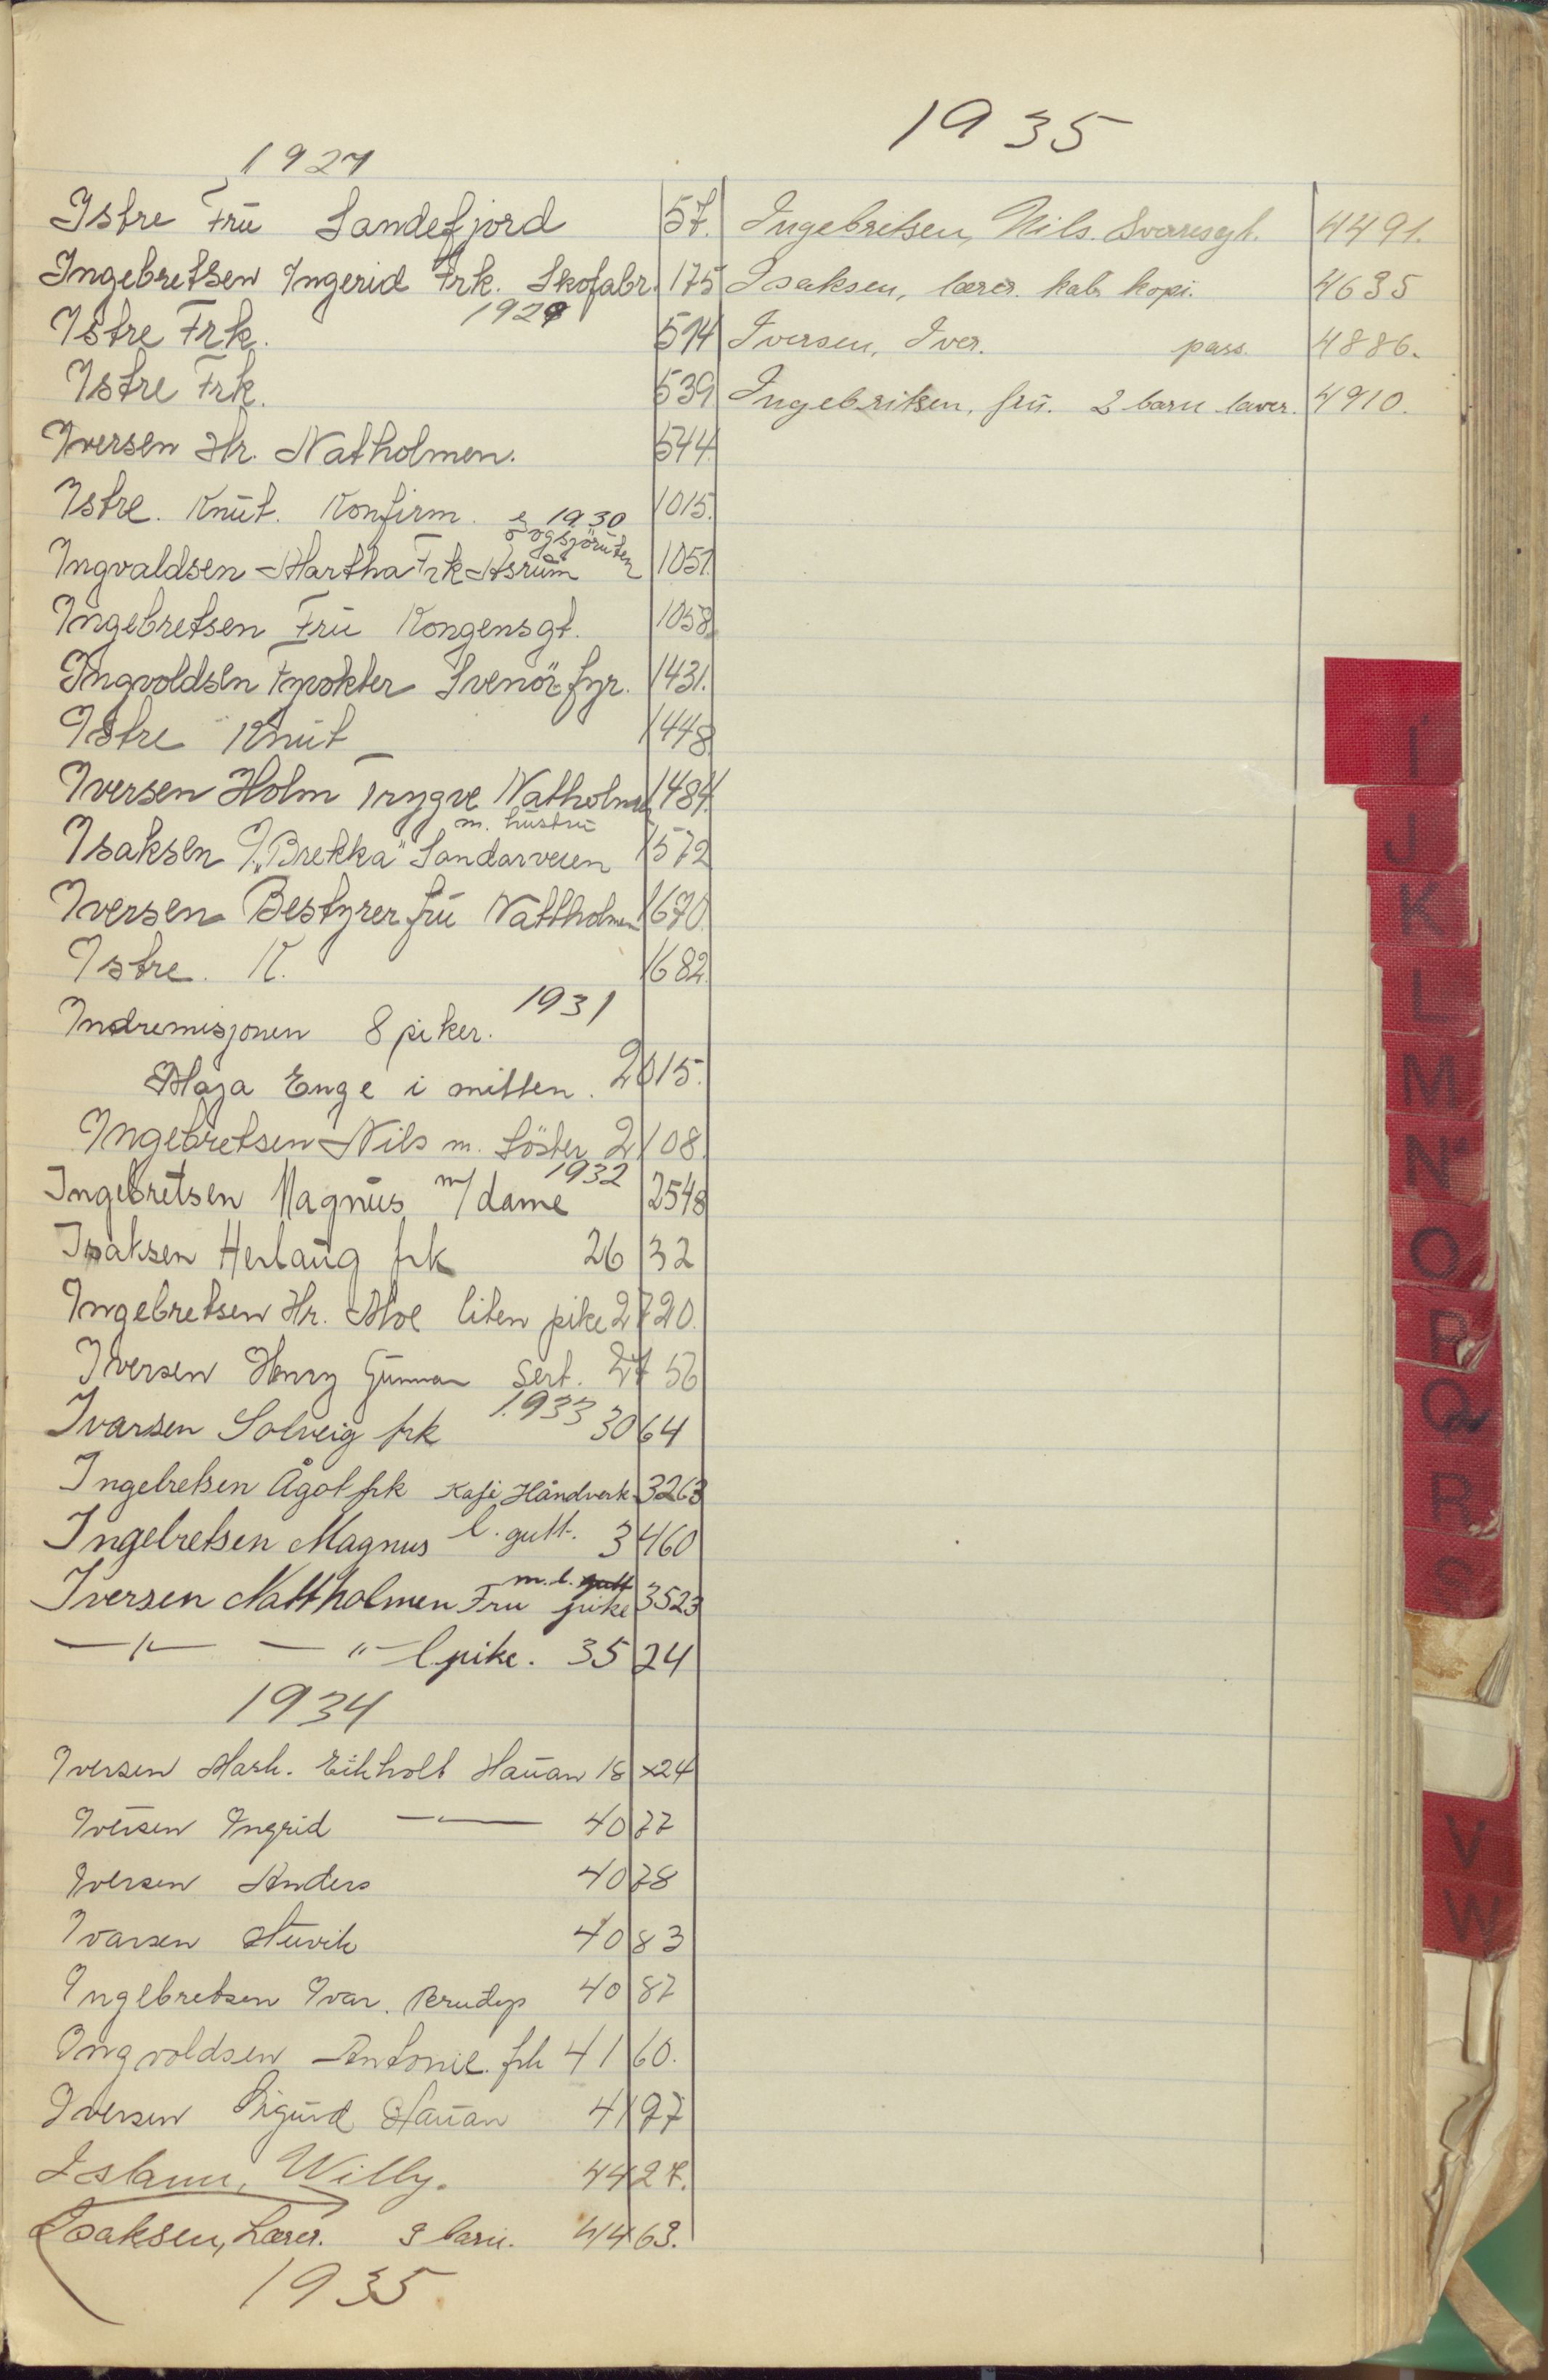 1927
Istre Frü Sandefjord 57.
Ingebretsen Ingerid Frk. Skofabr. 175
1929
Istre Frk. 514
Istre Frk. 539
Iversen Hr. Natholmen. 544.
Istre. Knüt. Konfirm. 1015.
1930
Ingvaldsen Martha Frk Åsrüm 1051.
Ingebretsen Frü Kongensgt. 1058.
Ingvoldsen Fyrvokter Svenör fyr. 1431.
Istre Knüt 1448.
Iversen Holm Trygve Natholmen 1484.
m. hüstrü
Isaksen I. "Brekka" Sandarveien 1572
Iversen Bestyrer frü Nattholmen 1670.
Istre. K. 1682.
1931
Indremisjonen 8 piker.
Maja Enge i mitten. 2015.
Ingebretsen Nils m. Söster 2108.
1932
Ingebretsen Magnüs m/dame 2548
Isaksen Herlaüg frk 2632
Ingebretsen Hr. Moe liten pike 2720.
Iversen Henry Günnar Sert. 2756
1933
Ivarsen Solveig frk 3064
Ingebretsen Ågot frk Kafe Håndverk. 3263
Ingebretsen Magnus l. gutt. 3460
m. l. gutt
Iversen Nattholmen Fru pike 3523
—"— —"— l. pike. 3524
1934
Iversen Mark. Eikholt Haüan 18 x24
Iversen Ingrid —"— 4077
Iversen Anders 4078
Ivarsen 4083
Ingebretsen Ivar. 4087
Ingvoldsen Antonie. frk 4160.
Iversen Sigürd Haüan 4197
Willy. 4427.
Isaksen, Lærer. 3 barn. 4463.
1935.
1935
Ingebretsen, Nils. 4491.
Isaksen, lærer. kab. kopi. 4635
Iversen, Iver. pass. 4886.
Ingebritsen, frü. 2 barn 4910.
I
J
K
L
M
N
O
P
Q
R
S
V
W